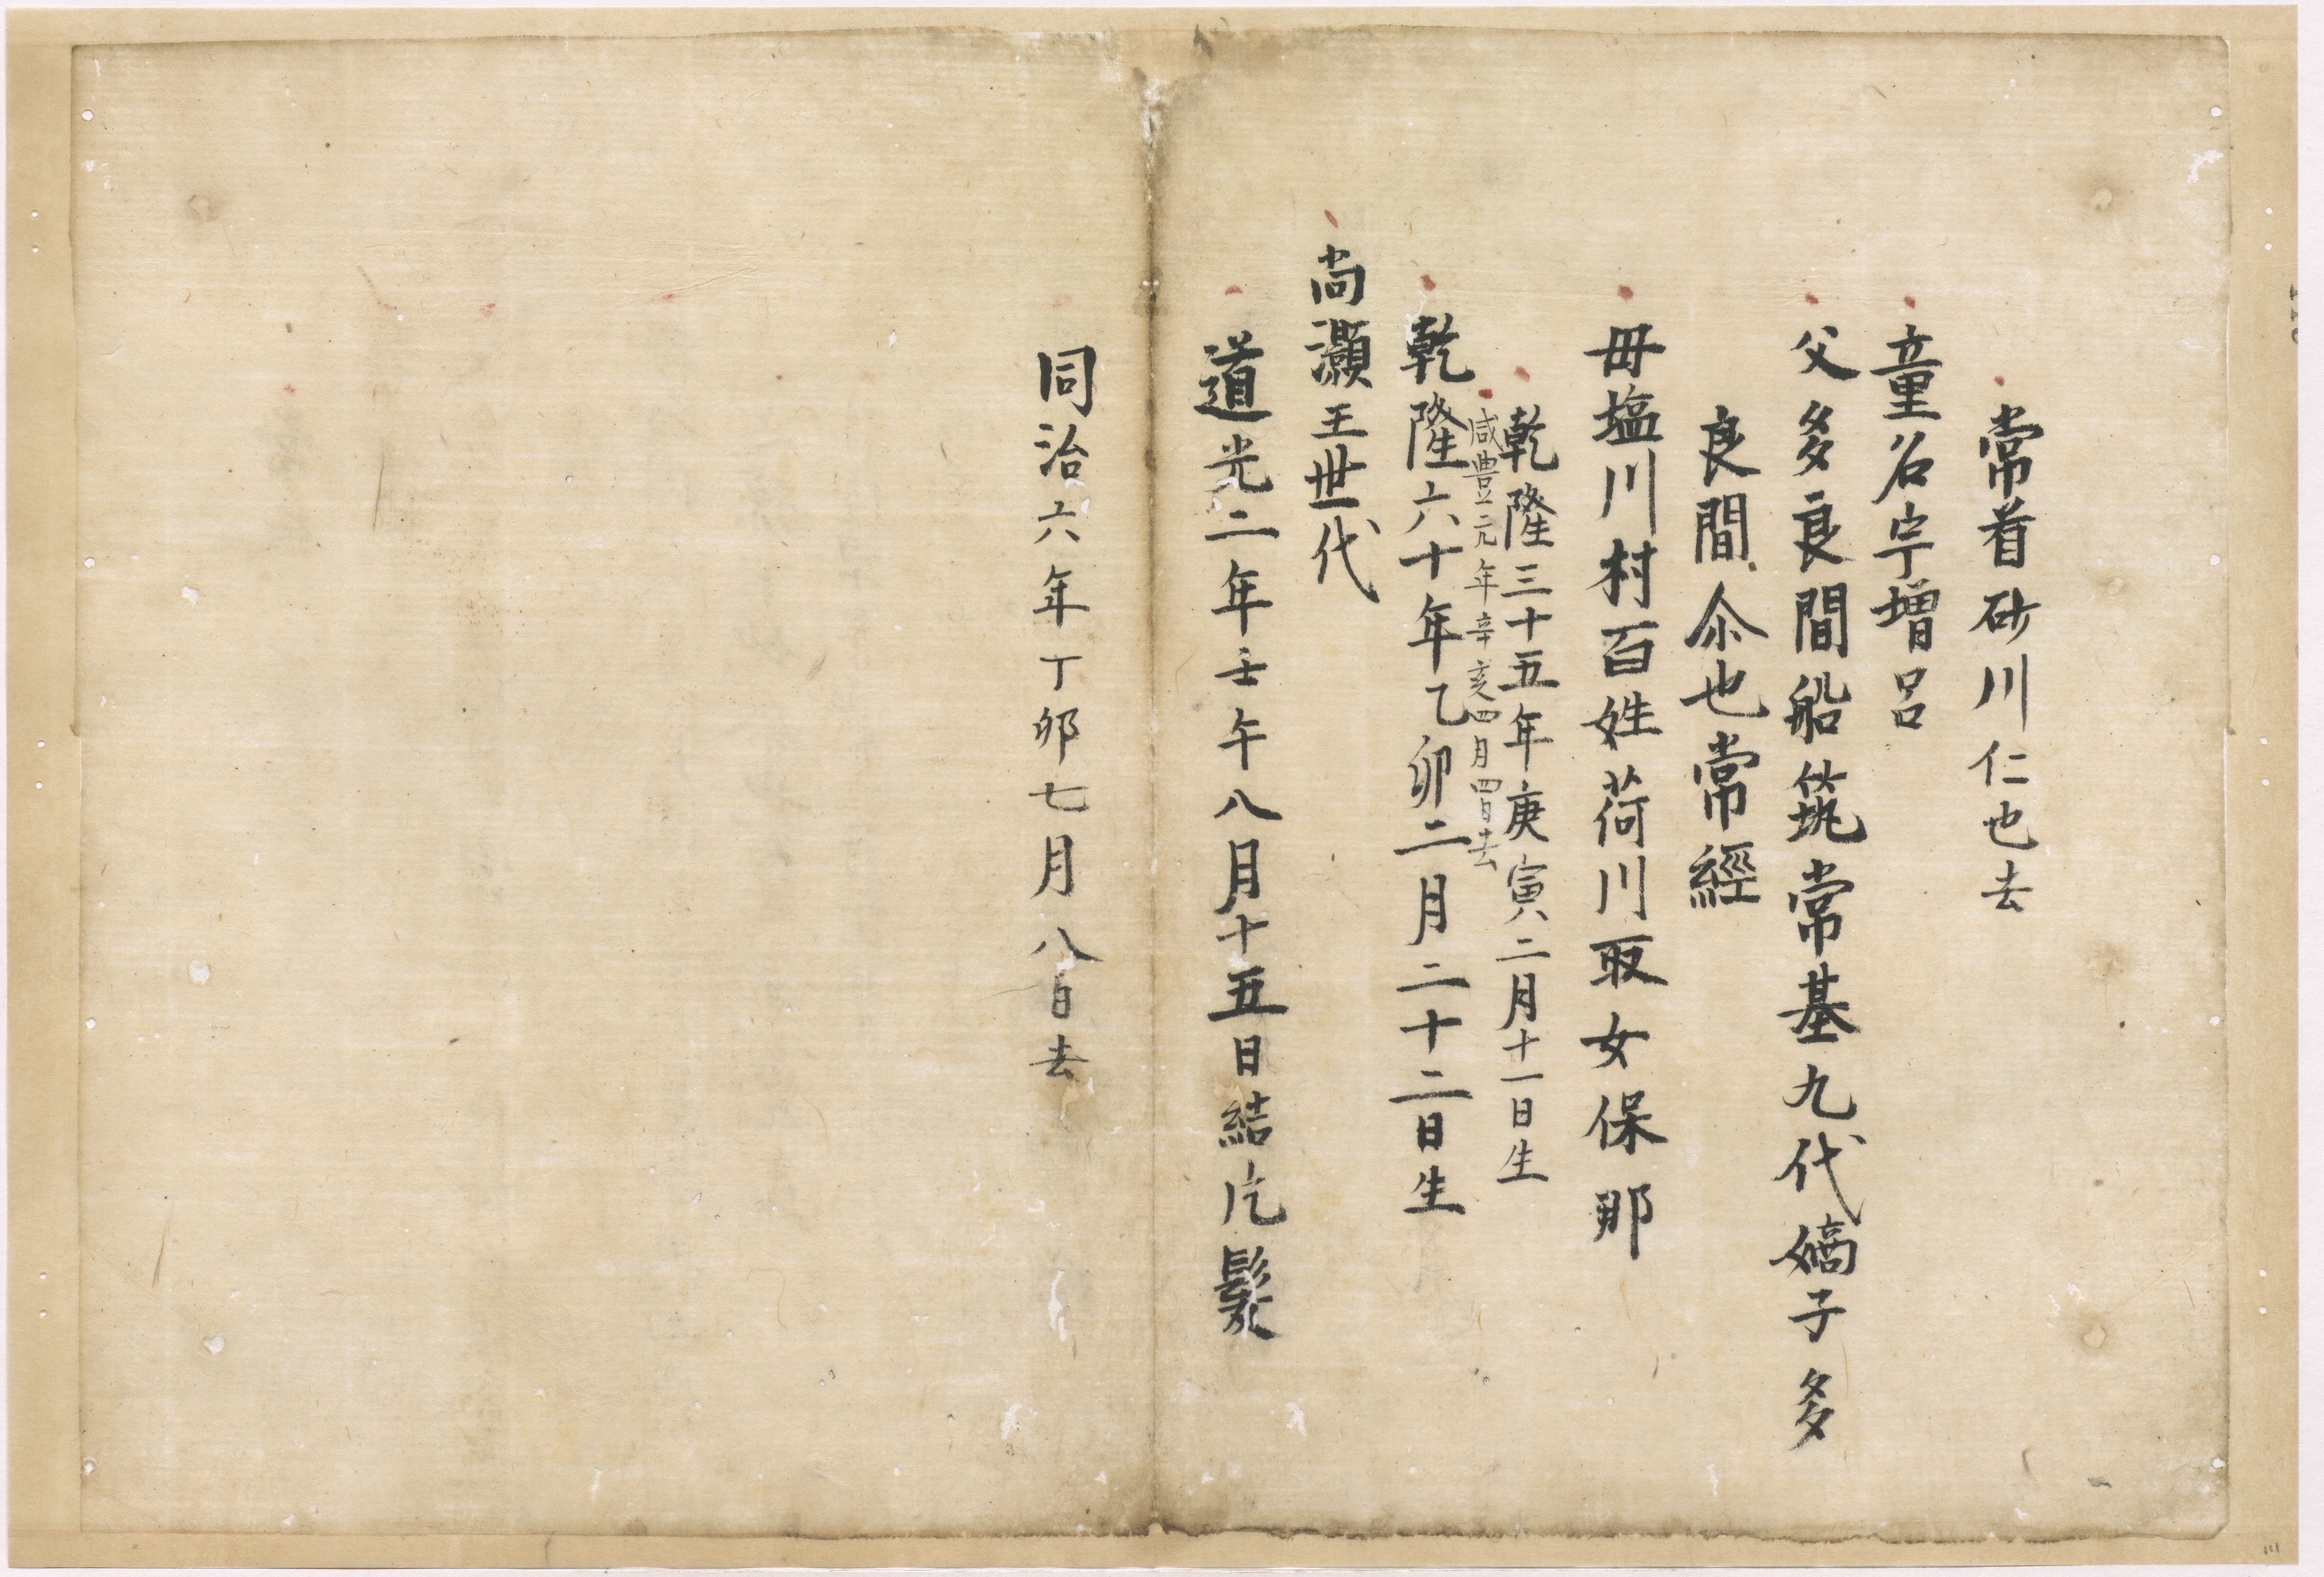 常着砂川仁也去
童名宇增呂
父多良間船筑常基九代嫡子多
良間尒也常經
毋塩川村百姓荷川取女保那
乾隆三十五年庚寅二月十一日生
咸豊元年辛亥四月四日去
乾隆六十年乙卯二月二十二日生
尚灝王世代
道光二年壬午八月十五日結片髮
同治六年丁卯七月八日去